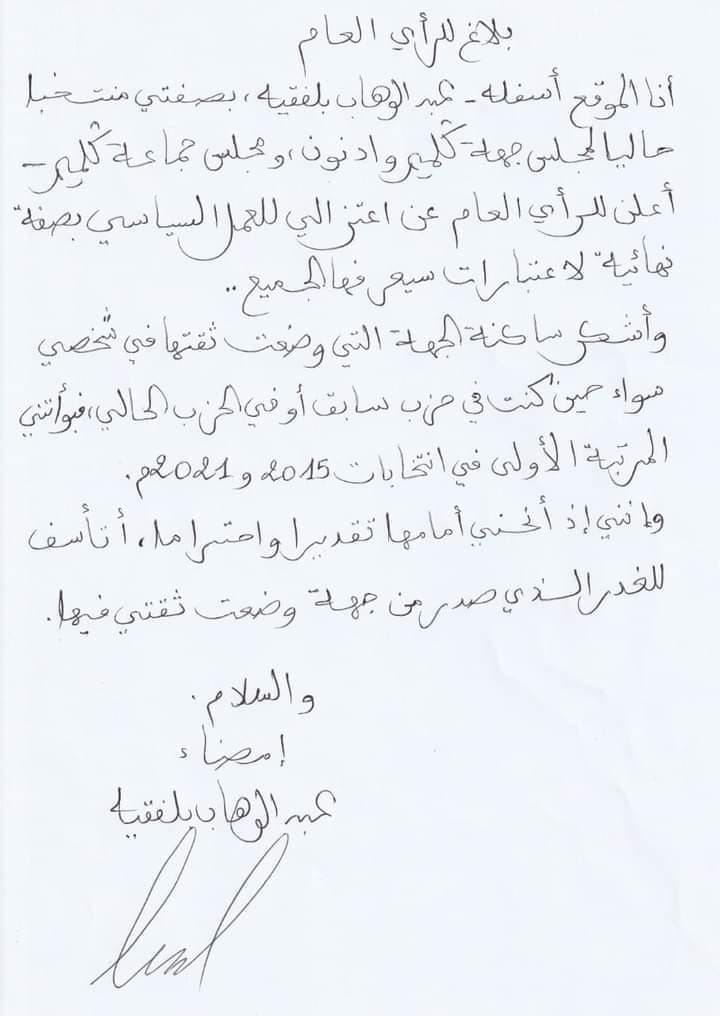 بلاغ للرأي العام
أنا الموقع أسفله - عبد الوهاب بلفقيه، بصفتي منتخبا
حاليا لمجلس جهة كلميم وادنون، ومجلس جماعة كلميم -
أعلن للرأي العام عن اعتزالي للعمل السياسي بصفة
نهائية لاعتبارات سيعرفها الجميع..
وأشكر ساكنة الجهة التي وضعت ثقتها في شخصي
سواء حين كنت في حزب سابق أو في الحزب الحالي، فبوأتني
المرتبة الأولى في انتخابات 2015 و 2021م.
وإنني إذ أنحني أمامها تقديرا واحتراما، أتأسف
للغدر الذي صدر من جهة وضعت ثقتي فيها.
والسلام.
إمضاء
عبد الوهاب بلفقيه